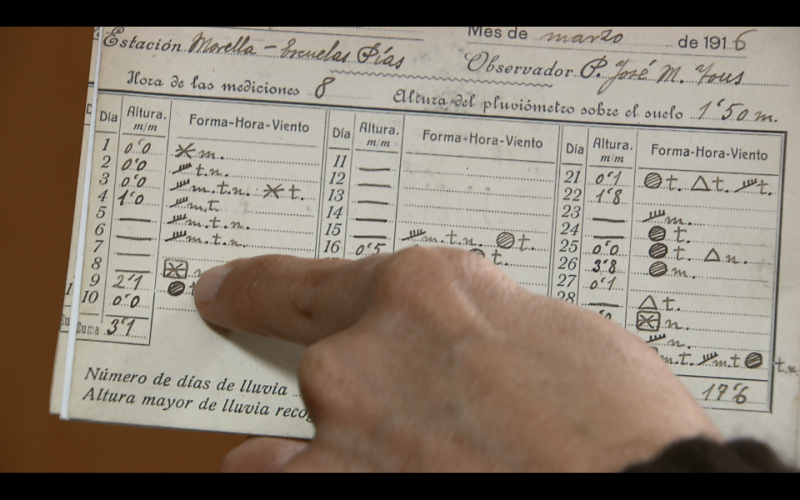 Mes de marzo de 1916
Estación Morella - Escuelas Pías
Observador P. José M. Yous
Hora de las mediciones 8
Altura del pluviómetro sobre el suelo 1'50 m.
Día Altura. m/m Forma-Hora-Viento Día Altura. m/m Forma-Hora-Viento Día Altura. m/m Forma-Hora-Viento
1 0'0 m.
2 0'0 t.n.
3 0'0 m.t.n. t.
4 1'0 m.t.
5 — m.t.n.
6 — m.t.n.
7 —
8 —
9 2'1
10 0'0
Suma 3'1
11 —
12 —
13 —
14 —
15 —
16 0'5 m.t.n. t.
t.
21 0'1 t. t. t.
22 1'8
23 — m.
24 — t.
25 0'0 t. n.
26 3'8 m.
27 0'1
28 — t.
n.
n.
m.t. m.t t.n.
17'6
Número de días de lluvia
Altura mayor de lluvia